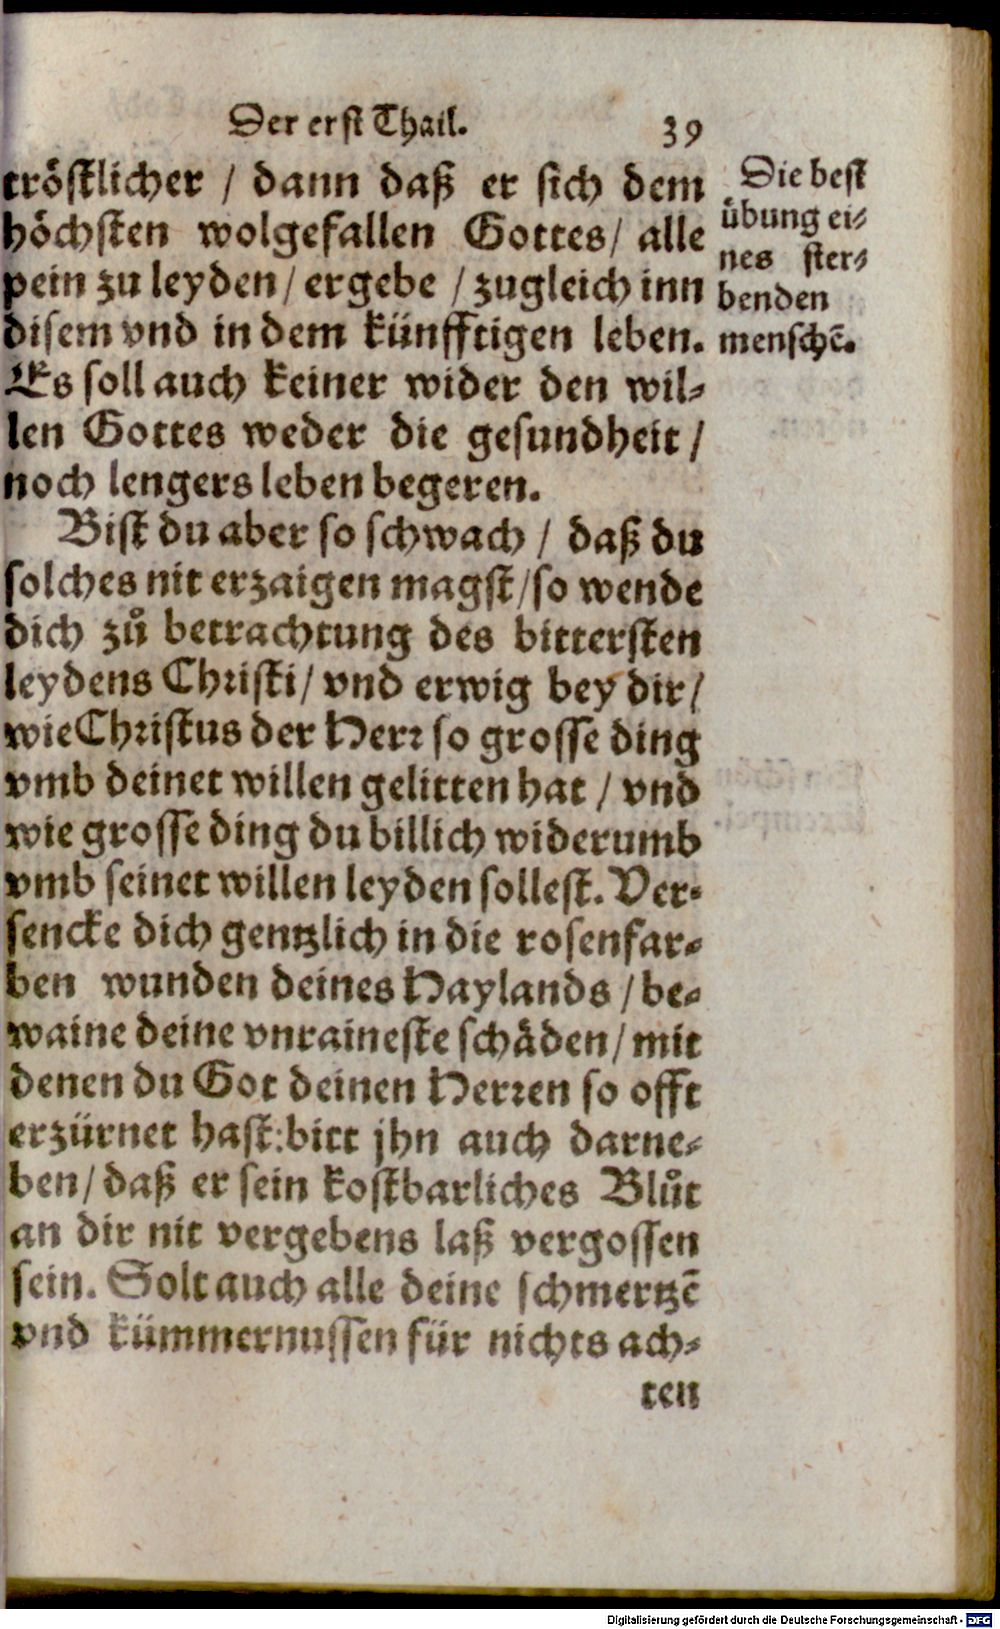 Der erst Thail. 39
tröstlicher / dann daß er sich dem
höchsten wolgefallen Gottes / alle
pein zu leyden / ergebe / zugleich inn
disem vnd in dem künfftigen leben.
Es soll auch keiner wider den wil⸗
len Gottes weder die gesundheit /
noch lengers leben begeren.
Bist du aber so schwach / daß du
solches nit erzaigen magst / so wende
dich zů betrachtung des bittersten
leydens Christi / vnd erwig bey dir /
wie Christus der Herr so grosse ding
vmb deinet willen gelitten hat / vnd
wie grosse ding du billich widerumb
vmb seinet willen leyden sollest. Ver⸗
sencke dich gentzlich in die rosenfar⸗
ben wunden deines Haylands / be⸗
waine deine vnraineste schäden / mit
denen du Got deinen Herren so offt
erzürnet hast: bitt jhn auch darne⸗
ben / daß er sein kostbarliches Blůt
an dir nit vergebens laß vergossen
sein. Solt auch alle deine schmertzē
vnd kümmernussen für nichts ach⸗
ten
Die best
übung ei⸗
nes ster⸗
benden
menschē.
Digitalisierung gefördert durch die Deutsche Forschungsgemeinschaft - DFG